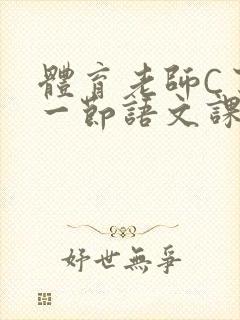 體育老師C
一節語文課
妤世無爭